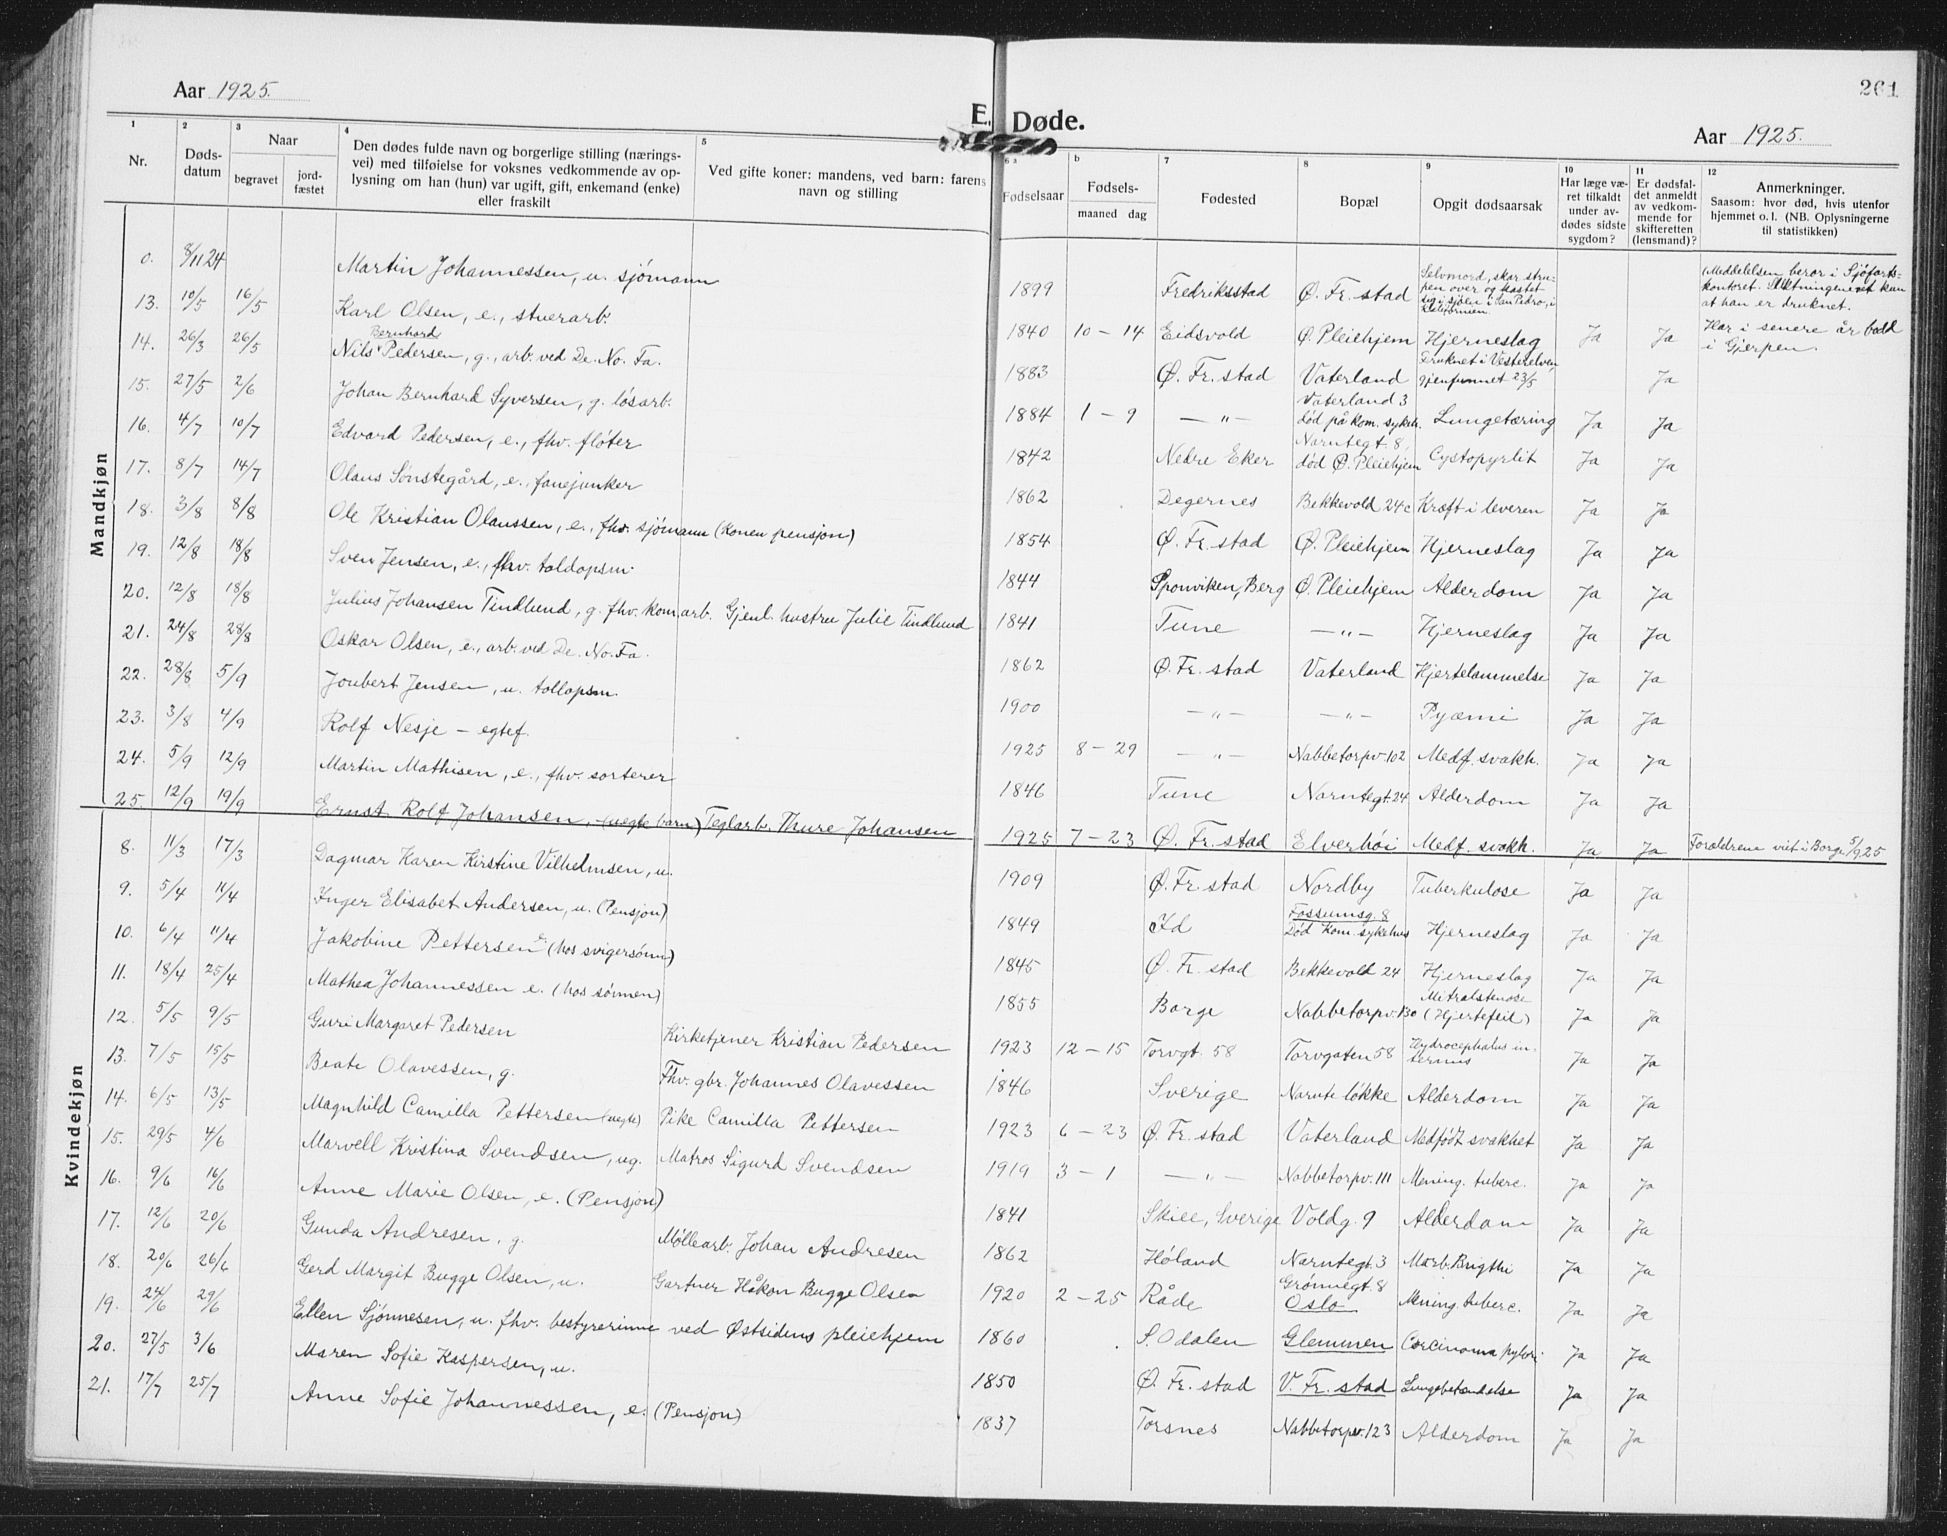 Aar 1925.
E. Døde.
Aar 1925.
261
1 Nr.
2 Døds-datum
3 Naar begravet jord-fæstet
4 Den dødes fulde navn og borgerlige stilling (nærings-vei) med tilføielse for voksnes vedkommende av op-lysning om han (hun) var ugift, gift, enkemand (enke) eller fraskilt
5 Ved gifte koner: mandens, ved barn: farens navn og stilling
6 a Fødselsaar
b Fødsels- maaned dag
7 Fødested
8 Bopæl
9 Opgit dødsaarsak
10 Har læge væ-ret tilkaldt under av-dødes sidste sygdom?
11 Er dødsfal-det anmeldt av vedkom-mende for skifteretten (lensmand)?
12 Anmerkninger. Saasom: hvor død, hvis utenfor hjemmet o. l. (NB. Oplysningerne til statistikken)
Mandkjøn
0. 8/11 24 Martin Johannessen, u. sjömann 1899 Fredriksstad Ø. Fr. stad Selvmord, skar stru-pen over og kastet sig i sjøen i San Pedro, i Kaliformien. (Meddelelsen beror i Sjöfarts-kontoret. Slutningene at han er druknet.
13. 10/5 16/5 Karl Olsen, e., stuerarb. 1840 10 - 14 Eidsvold Ø. Pleiehjem Hjerneslag Ja Ja Har i senere år bodd i Gjerpen.
14. 26/3 26/5 Nils Bernhard Pedersen, g., arb. ved De. No. Fa. 1883 Ø. Fr. stad Vaterland Druknet i Vesterelven, gjenfunnet 23/5 Ja
15. 27/5 2/6 Johan Bernhard Syversen, g. løsarb. 1884 1 - 9 — " — Vaterland 3 död på kom. sykeh. Lungetæring Ja Ja
16. 4/7 10/7 Edvard Pedersen, e., fhv. fløter 1842 Nedre Eker Narntegt. 8, död Ø. Pleiehjem Cystopyelit Ja Ja
17. 8/7 14/7 Olaus Sønstegård, e., fanejunker 1862 Degernes Bekkevold 24c Kræft i leveren Ja Ja
18. 3/8 8/8 Ole Kristian Olaussen, e., fhv. sjömann (Konen pensjon) 1854 Ø. Fr. stad Ø. Pleiehjem Hjerneslag Ja Ja
19. 12/8 18/8 Sven Jensen, e., fhv. toldopsm. 1844 Sponviken, Berg Ø. Pleiehjem Alderdom Ja Ja
20. 12/8 18/8 Julius Johansen Tindlund, g. fhv. kom. arb. Gjenl. hustru Julie Tindlund 1841 Tune — " — Hjerneslag Ja Ja
21. 24/8 28/8 Oskar Olsen, e., arb. ved De. No. Fa. 1862 Ø. Fr. stad Vaterland Hjertelammelse Ja Ja
22. 28/8 5/9 Joubert Jensen, u. tollopsm. 1900 — " — — " — Pyæmi Ja Ja
23. 3/8 4/9 Rolf Nesje - egtef. 1925 8 - 29 — " — Nabbetorpv. 102 Medf. svakh. Ja Ja
24. 5/9 12/9 Martin Mathisen, e., fhv. sorterer 1846 Tune Narntegt. 24 Alderdom Ja Ja
25. 12/9 19/9 Ernst Rolf Johansen, (uegte barn) Teglarb. Thure Johansen 1925 7 - 23 Ø. Fr. stad Elverhöi Medf. svakh. Ja Ja Forældrene viet i Borge 5/9 25
Kvindekjøn
8. 11/3 17/3 Dagmar Karen Kirstine Vilhelmsen, u. 1909 Ø. Fr. stad Nordby Tuberkulose Ja Ja
9. 5/4 11/4 Inger Elisabet Andersen, u. (Pensjon) 1849 Id Fossumsg. 8 Død Kom. sykehus Hjerneslag Ja Ja
10. 6/4 11/4 Jakobine Pettersen e. (hos svigersönn) 1845 Ø. Fr. stad Bekkevold 24 Hjerneslag Ja Ja
11. 18/4 25/4 Mathea Johannessen e. (hos sönnen) 1855 Borge Nabbetorpv. 130 Mitralstenose (Hjertefeil) Ja Ja
12. 5/5 9/5 Guri Margaret Pedersen Kirketjener Kristian Pedersen 1923 12 - 15 Torvgt. 58 Torvgaten 58 Hydrocephalus in-ternus Ja Ja
13. 7/5 15/5 Beate Olavessen, g. Fhv. gbr. Johannes Olavessen 1846 Sverige Narnte løkke Alderdom Ja Ja
14. 6/5 13/5 Magnhild Camilla Pettersen (uegte) Pike Camilla Pettersen 1923 6 - 23 Ø. Fr. stad Vaterland Medfödt svakhet Ja Ja
15. 29/5 4/6 Marvell Kristina Svendsen, ug. Matros Sigurd Svendsen 1919 3 - 1 — " — Nabbetorpv. 111 Mening. tuberc. Ja Ja
16. 9/6 16/6 Anne Marie Olsen, e. (Pensjon) 1841 Skiee, Sverige Voldg. 9 Alderdom Ja Ja
17. 12/6 20/6 Gunda Andresen, g. Møllearb. Johan Andresen 1862 Høland Narntegt. 3 Marb. Brigthi Ja Ja
18. 20/6 26/6 Gerd Margit Bugge Olsen, u. Gartner Håkon Bugge Olsen 1920 2 - 25 Råde Grönnegt. 8 Oslo Mening. tuberc. Ja Ja
19. 24/6 29/6 Ellen Sjönnesen, u. fhv. bestyrerinne ved Østsidens pleiehjem 1860 S. Odalen Glemmen Carcinoma pylori Ja Ja
20. 27/5 3/6 Maren Sofie Kaspersen, u. 1850 Ø. Fr. stad V. Fr. stad Lungebetændelse Ja Ja
21. 17/7 25/7 Anne Sofie Johannessen, e. (Pensjon) 1837 Torsnes Nabbetorpv. 123 Alderdom Ja Ja